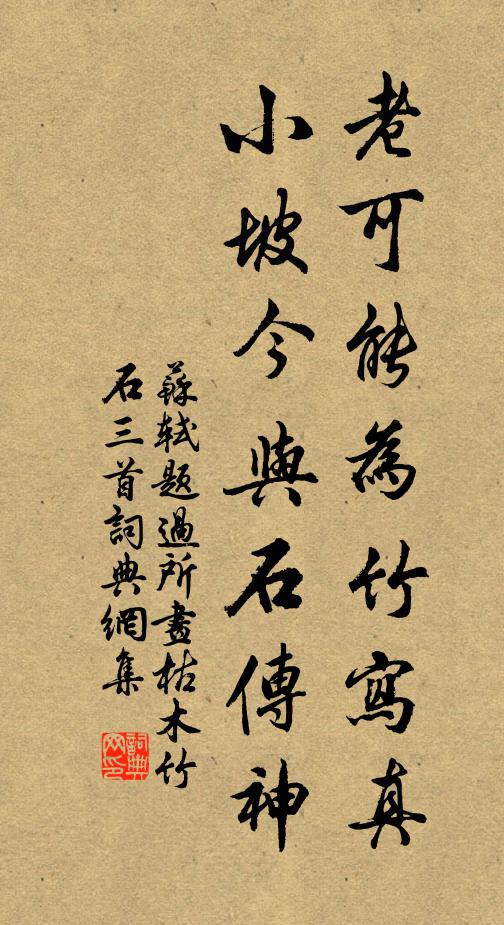 老可能為竹寫真
小坡今與石傳神
蘇軾題過所畫枯木竹
石三首詞典網集
詞典
网印